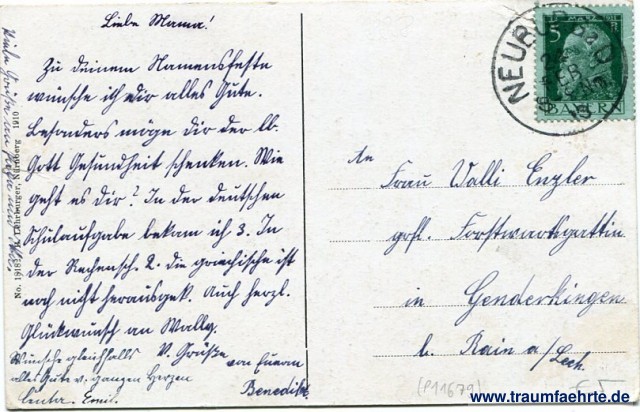 Liebe Mama!
Zu deinem Namensfeste
wünsche ich dir alles Gute.
Besonders möge dir der lb.
Gott Gesundheit schenken. Wie
geht es dir? In der deutschen
Schulaufgabe bekam ich 3. In
der Rechensch. 2. die griechische ist
noch nicht herausgek. Auch herzl.
Glückwunsch an Wally.
V. Grüße von Eurem
Benedikt
Wünsche gleichfalls
alles Gute v. ganzen Herzen
Emil.
Viele Grüße an Papa und
No. 1918 Lehrburger, Nürnberg 1910
NEUBURG
5
BAYERN
An
Frau Walli Enzler
Forstwartsgattin
in Genderkingen
b. Rain a/Lech.
(P11679)
www.traumfaehrte.de